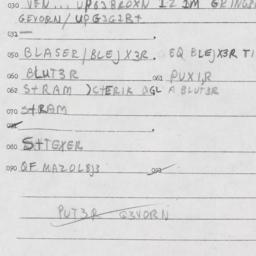 030 VFN ... UPG3BROXN 12 1M GRINGB
GEVORN / UPG3G2R+
032 — .
050 BLASER / BLEJX3R . EQ BLEJX3R TI
060 BLUT3R 061 PUX1R
062 S+RAM )C+ERIK OGL A BLUT3R
070 S+RAM
.
080 S+TGXER
090 QF MAZOL8J3
PUT3R G3VORN